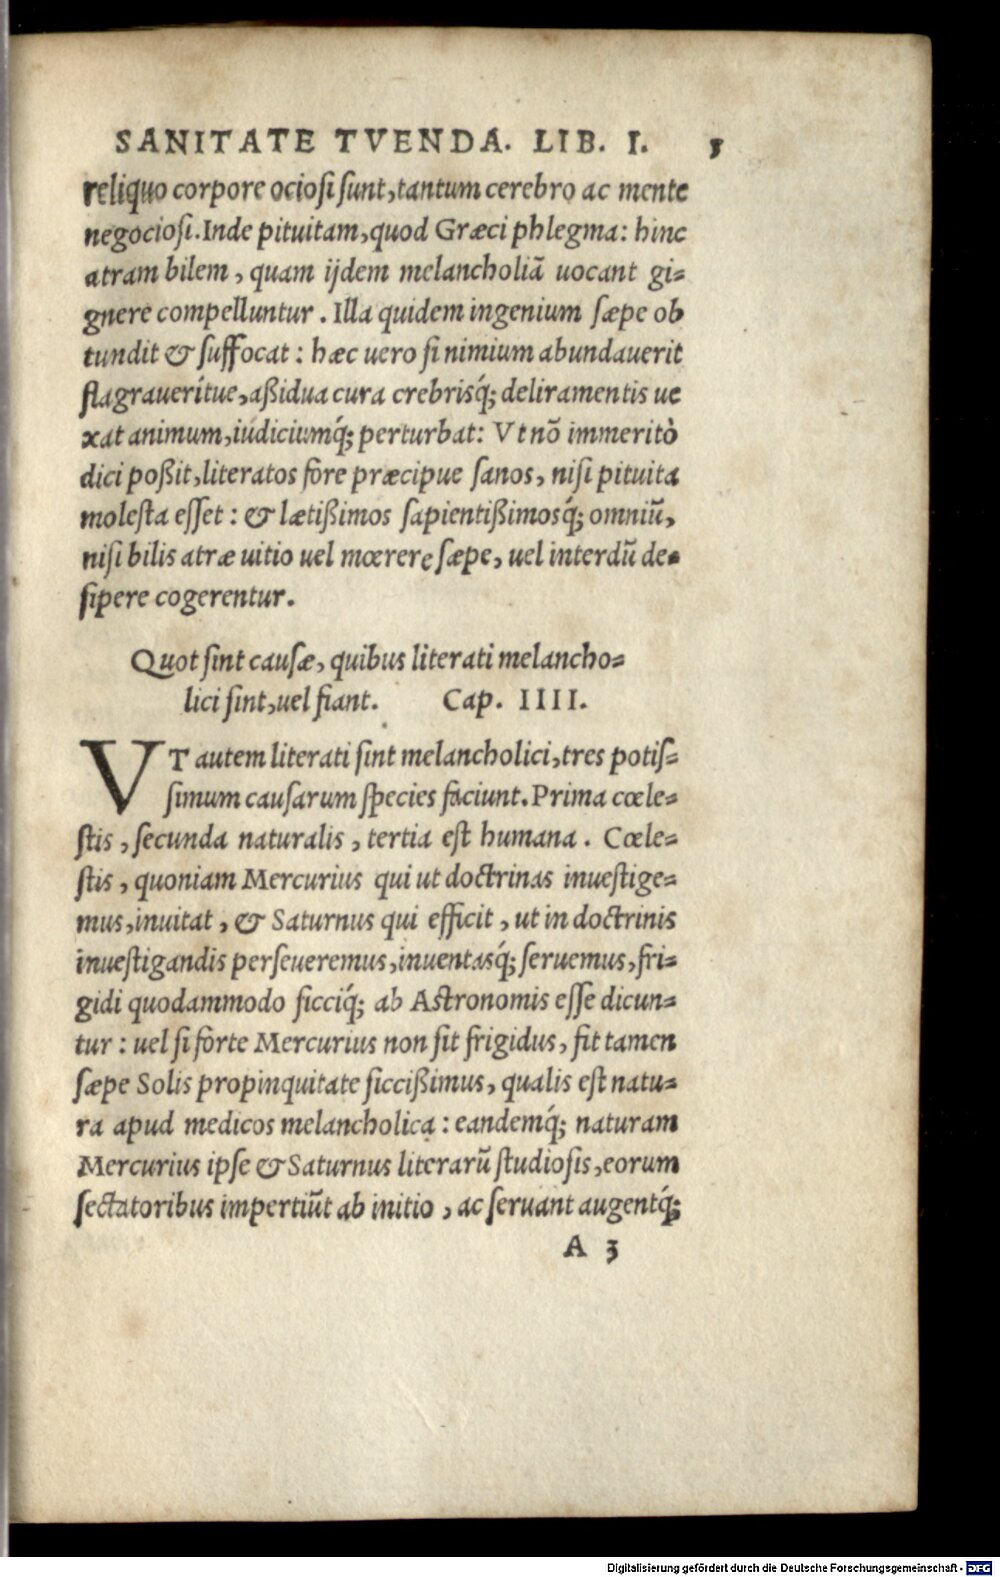 SANITATE TVENDA. LIB. I. 5
reliquo corpore ociosi sunt, tantum cerebro ac mente
negociosi. Inde pituitam, quod Græci phlegma: hinc
atram bilem, quam ijdem melancholiã uocant gi=
gnere compelluntur. Illa quidem ingenium sæpe ob
tundit & suffocat: hæc uero si nimium abundauerit
flagraueritue, aßidua cura crebrisq́; deliramentis ue
xat animum, iudiciumq́; perturbat: Vt nõ immeritò
dici poßit, literatos fore præcipue sanos, nisi pituita
molesta esset: & lætißimos sapientißimosq́; omniũ,
nisi bilis atræ uitio uel mœrere sæpe, uel interdũ de=
sipere cogerentur.
Quot sint causæ, quibus literati melancho=
lici sint, uel fiant. Cap. IIII.
VT autem literati sint melancholici, tres potis=
simum causarum species faciunt. Prima cœle=
stis, secunda naturalis, tertia est humana. Cœle=
stis, quoniam Mercurius qui ut doctrinas inuestige=
mus, inuitat, & Saturnus qui efficit, ut in doctrinis
inuestigandis perseueremus, inuentasq́; seruemus, fri=
gidi quodammodo sicciq́; ab Astronomis esse dicun=
tur: uel si forte Mercurius non sit frigidus, fit tamen
sæpe Solis propinquitate siccißimus, qualis est natu=
ra apud medicos melancholica: eandemq́; naturam
Mercurius ipse & Saturnus literarũ studiosis, eorum
sectatoribus impertiũt ab initio, ac seruant augentq́;
A 3
Digitalisierung gefördert durch die Deutsche Forschungsgemeinschaft - DFG